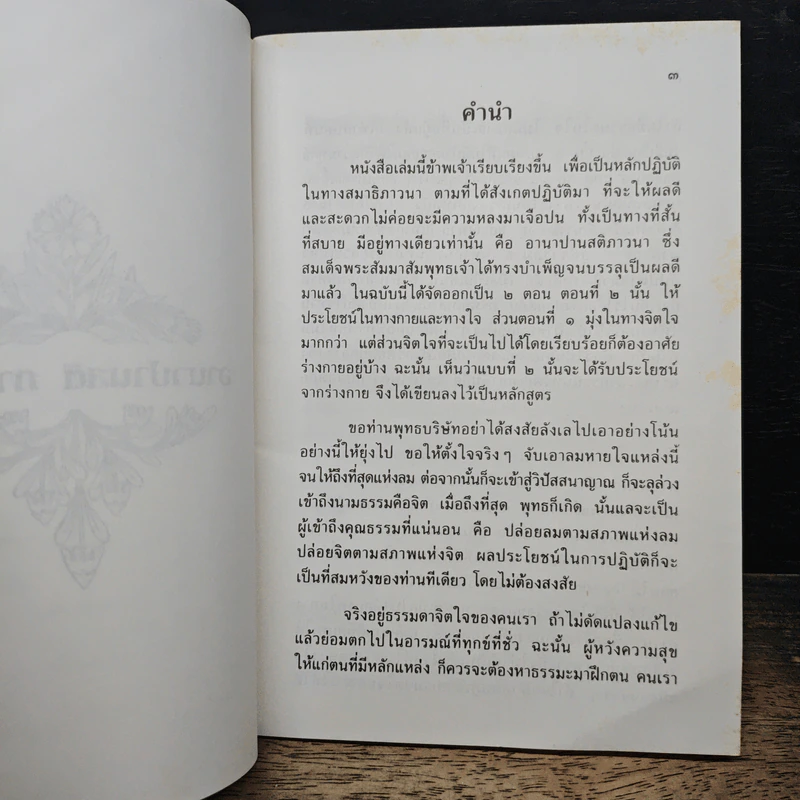 ๓
คำนำ
หนังสือเล่มนี้ข้าพเจ้าเรียบเรียงขึ้น เพื่อเป็นหลักปฏิบัติ
ในทางสมาธิภาวนา ตามที่ได้สังเกตปฏิบัติมา ที่จะให้ผลดี
และสะดวกไม่ค่อยจะมีความหลงมาเจือปน ทั้งเป็นทางที่สั้น
ที่สบาย มีอยู่ทางเดียวเท่านั้น คือ อานาปานสติภาวนา ซึ่ง
สมเด็จพระสัมมาสัมพุทธเจ้าได้ทรงบำเพ็ญจนบรรลุเป็นผลดี
มาแล้ว ในฉบับนี้ได้จัดออกเป็น ๒ ตอน ตอนที่ ๒ นั้น ให้
ประโยชน์ในทางกายและทางใจ ส่วนตอนที่ ๑ มุ่งในทางจิตใจ
มากกว่า แต่ส่วนจิตใจที่จะเป็นไปได้โดยเรียบร้อยก็ต้องอาศัย
ร่างกายอยู่บ้าง ฉะนั้น เห็นว่าแบบที่ ๒ นั้นจะได้รับประโยชน์
จากร่างกาย จึงได้เขียนลงไว้เป็นหลักสูตร
ขอท่านพุทธบริษัทอย่าได้สงสัยลังเลไปเอาอย่างโน้น
อย่างนี้ให้ยุ่งไป ขอให้ตั้งใจจริงๆ จับเอาลมหายใจแหล่งนี้
จนให้ถึงที่สุดแห่งลม ต่อจากนั้นก็จะเข้าสู่วิปัสสนาญาณ ก็จะลุล่วง
เข้าถึงนามธรรมคือจิต เมื่อถึงที่สุด พุทธก็เกิด นั้นแลจะเป็น
ผู้เข้าถึงคุณธรรมที่แน่นอน คือ ปล่อยลมตามสภาพแห่งลม
ปล่อยจิตตามสภาพแห่งจิต ผลประโยชน์ในการปฏิบัติก็จะ
เป็นที่สมหวังของท่านทีเดียว โดยไม่ต้องสงสัย
จริงอยู่ธรรมดาจิตใจของคนเรา ถ้าไม่ดัดแปลงแก้ไข
แล้วย่อมตกไปในอารมณ์ที่ทุกข์ที่ชั่ว ฉะนั้น ผู้หวังความสุข
ให้แก่ตนที่มีหลักแหล่ง ก็ควรจะต้องหาธรรมะมาฝึกตน คนเรา